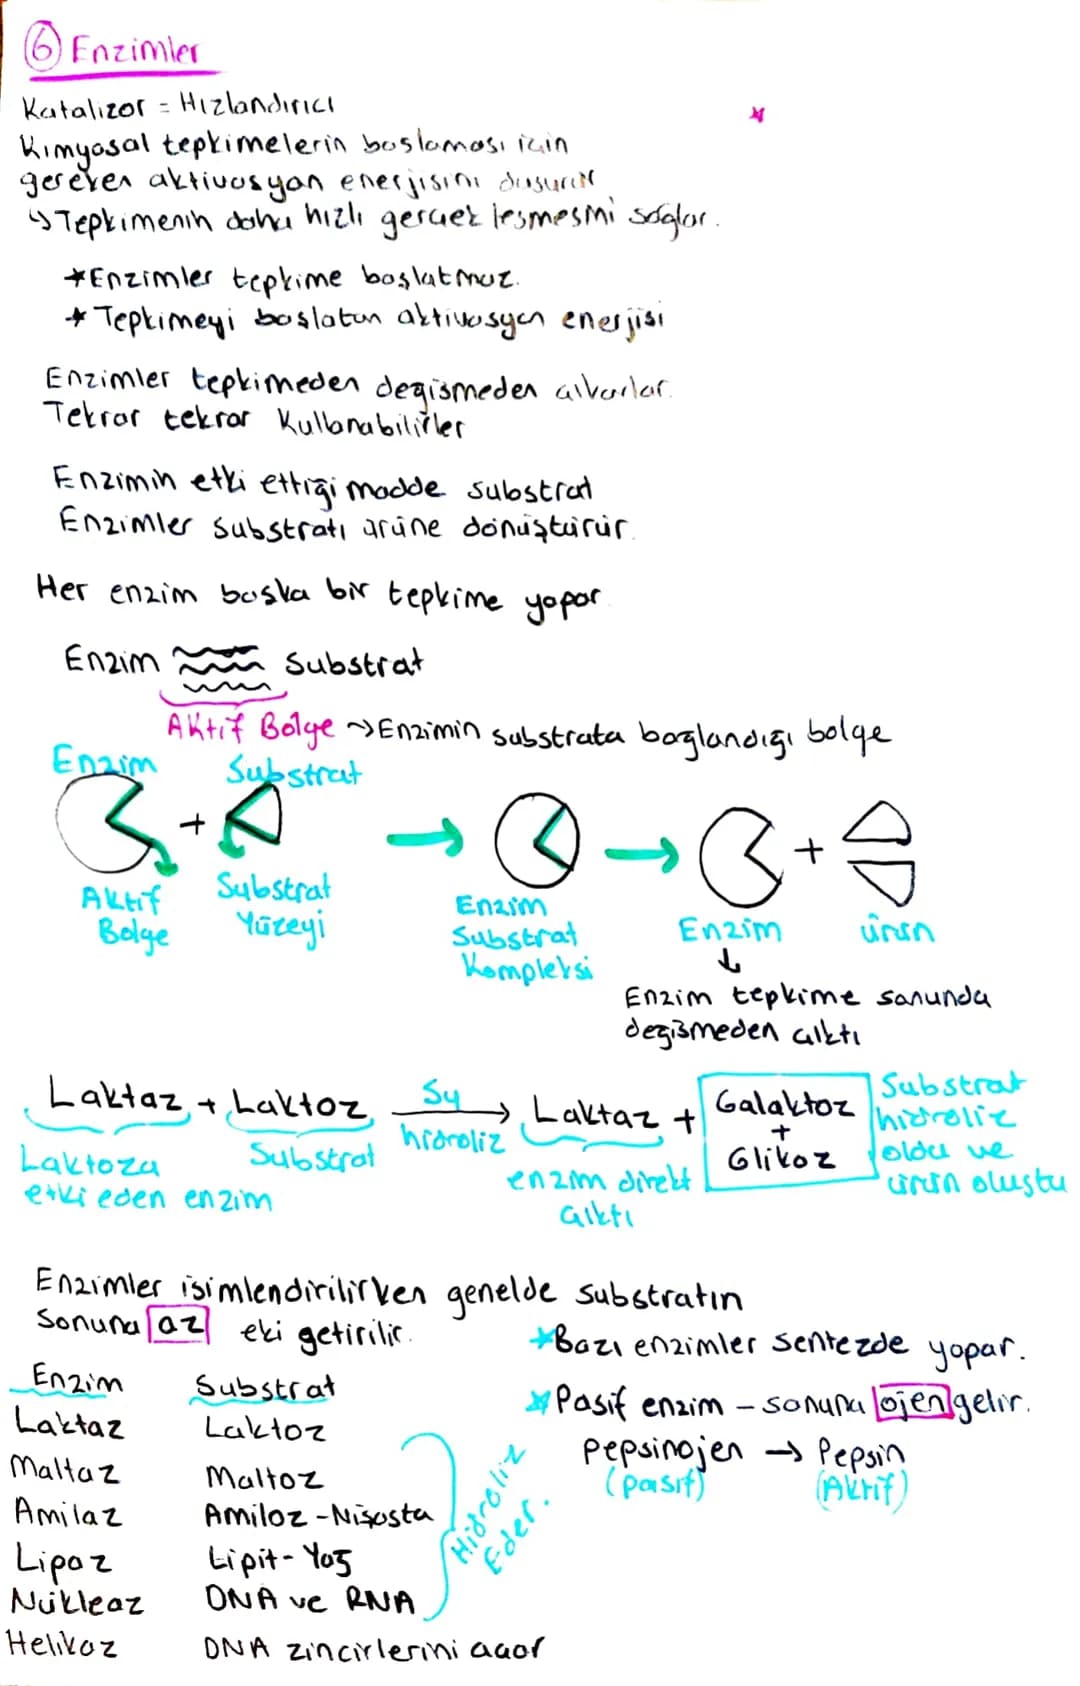 6 Enzimler
Katalizor = Hızlandırıcı
Kimyasal tepkimelerin baslaması için
gereken aktivasyon enerjisini dusurur
↳ Tepkimenin daha hızlı gercek lesmesini sağlar.
*Enzimler tepkime başlatmaz.
* Tepkimeyi baslatan aktivasyon enerjisi
Enzimler tepkimeden değismeden çıkarlar.
Tekrar tekrar Kullanabilirler
Enzimin etki ettiği madde substrat
Enzimler Substratı ürüne dönüştürür.
Her enzim baska bir tepkime yapar
Enzim Substrat
Aktif Bölge ~> Enzimin substrata bağlandığı bolge
Enzim Substrat
+ → → +
Aktif Bolge
Substrat Yüzeyi
Enzim Substrat Kompleksi
Enzim
ürün
↓
Enzim tepkime sonunda
değismeden çıktı
Laktaz + Laktoz Su hidroliz → Laktaz + Galaktoz + Glikoz
Laktoza
etki eden enzim
Substrat
enzim direkt
çıktı
Substrat
hidroliz
oldu ve
ürün oluştu
Enzimler isimlendirilirken genelde substratın
Sonuna az eki getirilir.
*Bazı enzimler sentezde yapar.
*Pasif enzim - sonuna ojen gelir.
Pepsinojen → Pepsin
(pasif) (Aktif)
Enzim Substrat
Laktaz Laktoz
Maltaz Maltoz
Amilaz Amiloz - Nişasta
Lipaz Lipit - Yağ
Nükleaz DNA ve RNA
Hidroliz
Eder.
Helikaz DNA zincirlerini açar